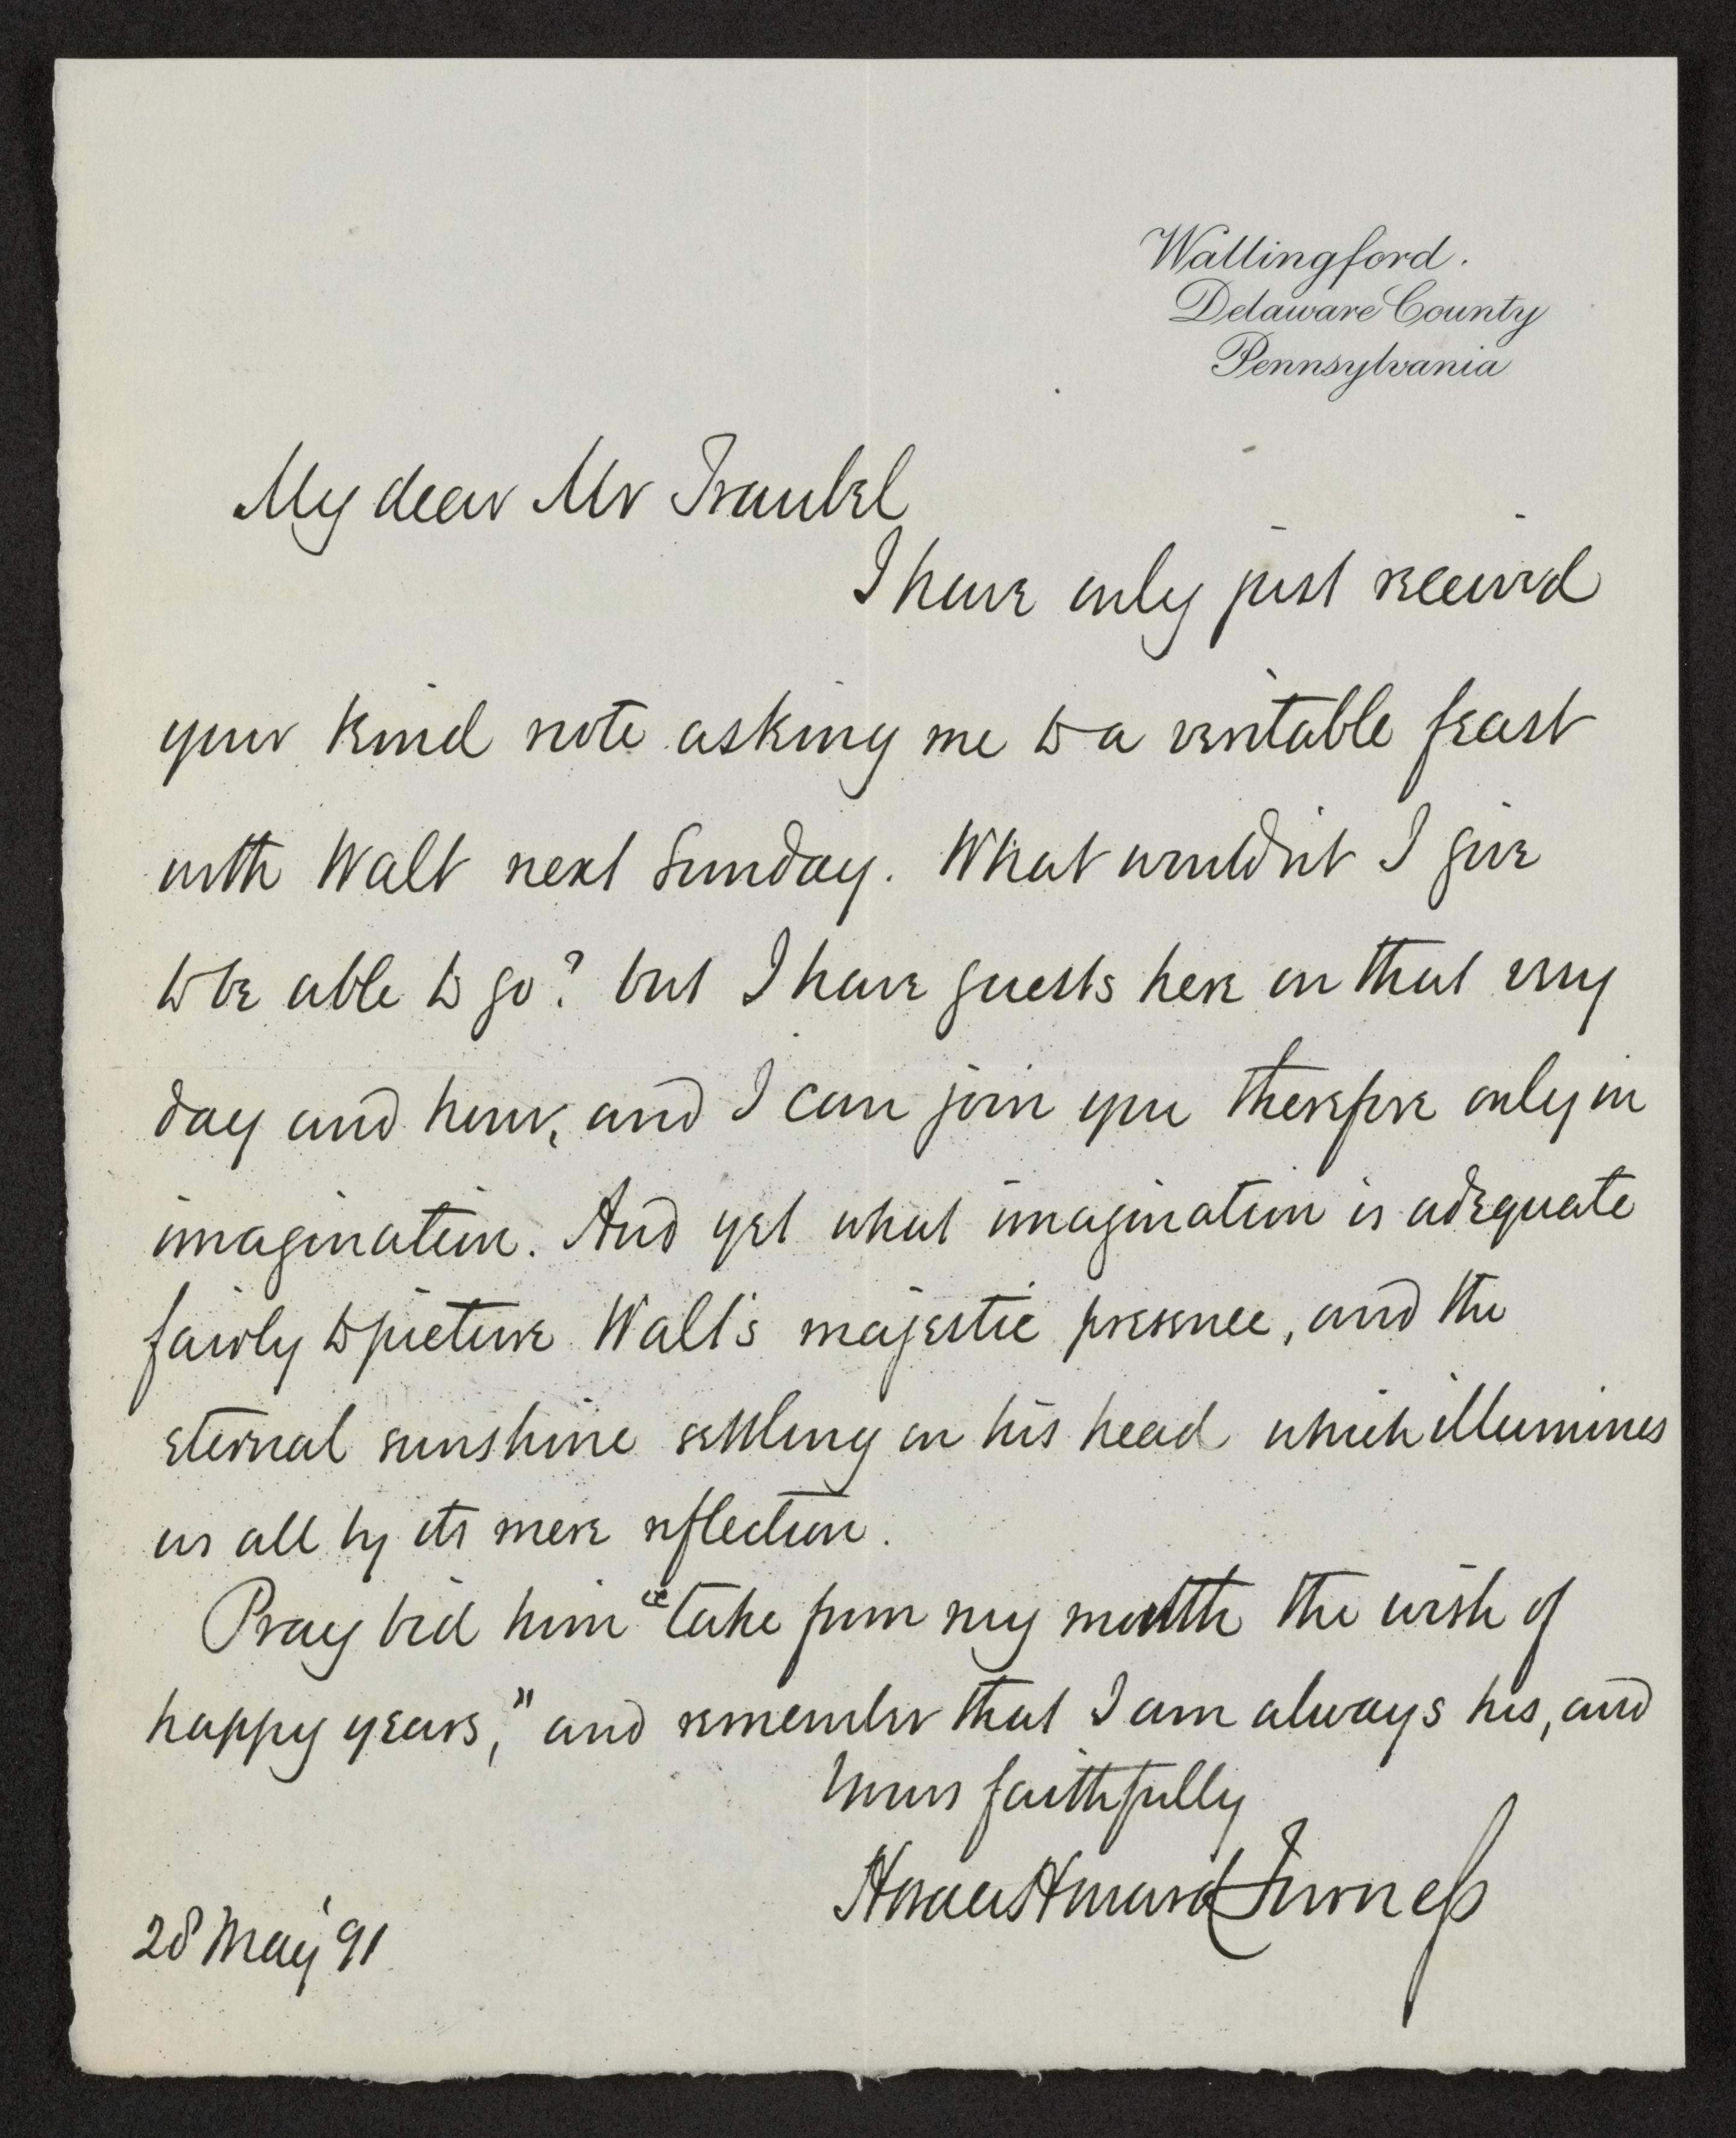 Wallingford.
Delaware County
Pennsylvania
My dear Mr Traubel
I have only just received
your kind note asking me to a veritable feast
with Walt next Sunday. What wouldn't I give
to be able to go? but I have guests here on that very
day and hour, and I can join you therefore only in
imagination. And yet what imagination is adequate
fairly to picture Walt's majestic presence, and the
eternal sunshine settling on his head which illumines
us all by its mere reflection.
Pray bid him "take from my mouth the wish of
happy years," and remember that I am always his, and
Yours faithfully
Horace Howard Furness
28 May '91